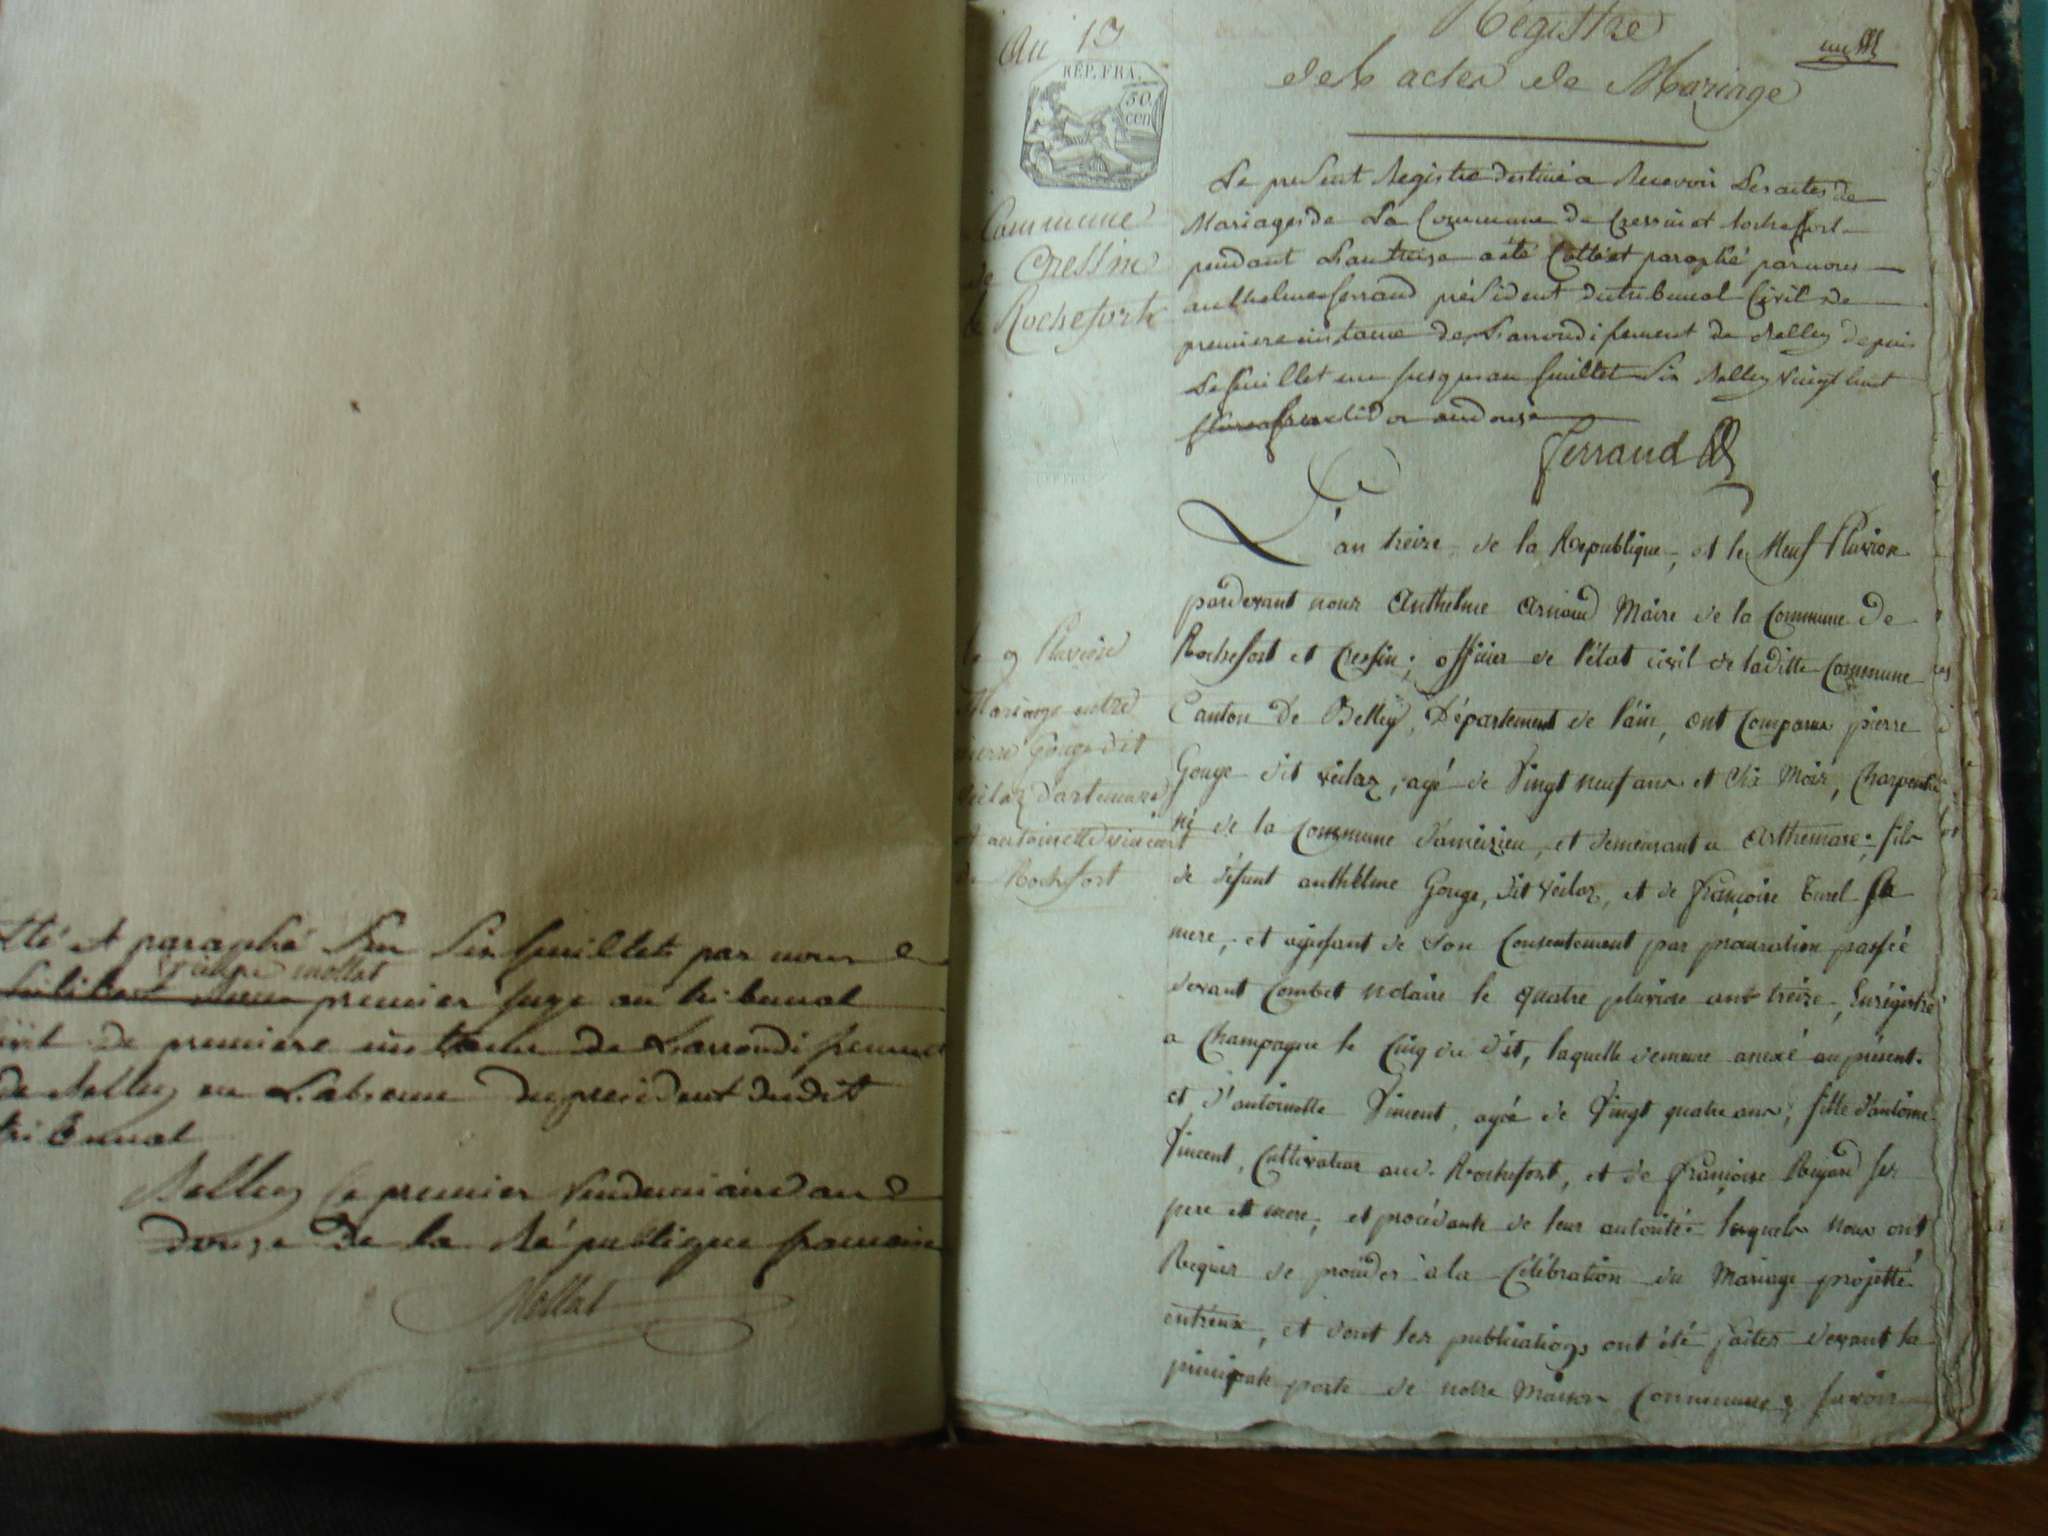 tté et paraphé Sur Six feuillets par nous
premier juge au tribunal
Civil de premiere instance de Larrondissement
de Belley en L'absence du president dudit
tribunal
Belley Le premier Vendemiaire an
douze de la République francaise
Mollat
An 13
REP. FRA.
50 cen
Commune
de Cressin
& Rochefort
Régistre
des actes de Mariage
Le present Registre destiné a Recevoir Les actes de
Mariages de La Commune de Cressin et Rochefort
pendant L'an treize a été Cotté et paraphé par nous
anthelme ferrand président du tribunal Civil de
premiere instance de L'arrondissement de Belley depuis
Le feuillet un jusqu'au feuillet Six Belley Vingt huit
an douze
Ferrand
le 9 Pluviose
Mariage entre
pierre Gouge dit
veilaz d'artemare
et antoinette vincent
de Rochefort
L'an treize de la République, et le Neuf Pluviose
pardevant nous Anthelme Arnaud Maire de la Commune de
Rochefort et Cressin; officier de l'état civil de laditte Commune
Canton de Belley, Département de l'ain, ont Comparus pierre
Gouge dit veilaz, agé de Vingt neuf ans et Six Mois, Charpentier
né de la Commune d'ameizieu, et demeurant a Arthemare; fils
de défunt anthelme Gouge, dit veilaz, et de françoise Turel Sa
mere, et agissant de Son Consentement par procuration passée
devant Combet notaire le quatre pluviose ant treize, Enrégistré
a Champagne le Cinq du dit, laquelle demeure anexé au présent.
et d'antoinette Vincent, agée de Vingt quatre ans, fille d'antoine
Vincent, Cultivateur aud. Rochefort, et de françoise Ses
pere et mere, et procédante de leur autorité. lesquels Nous ont
Requis de procéder à la Célébration du Mariage projetté
entreux, et dont les publications ont été faites devant la
principale porte de notre Maison Commune; Savoir